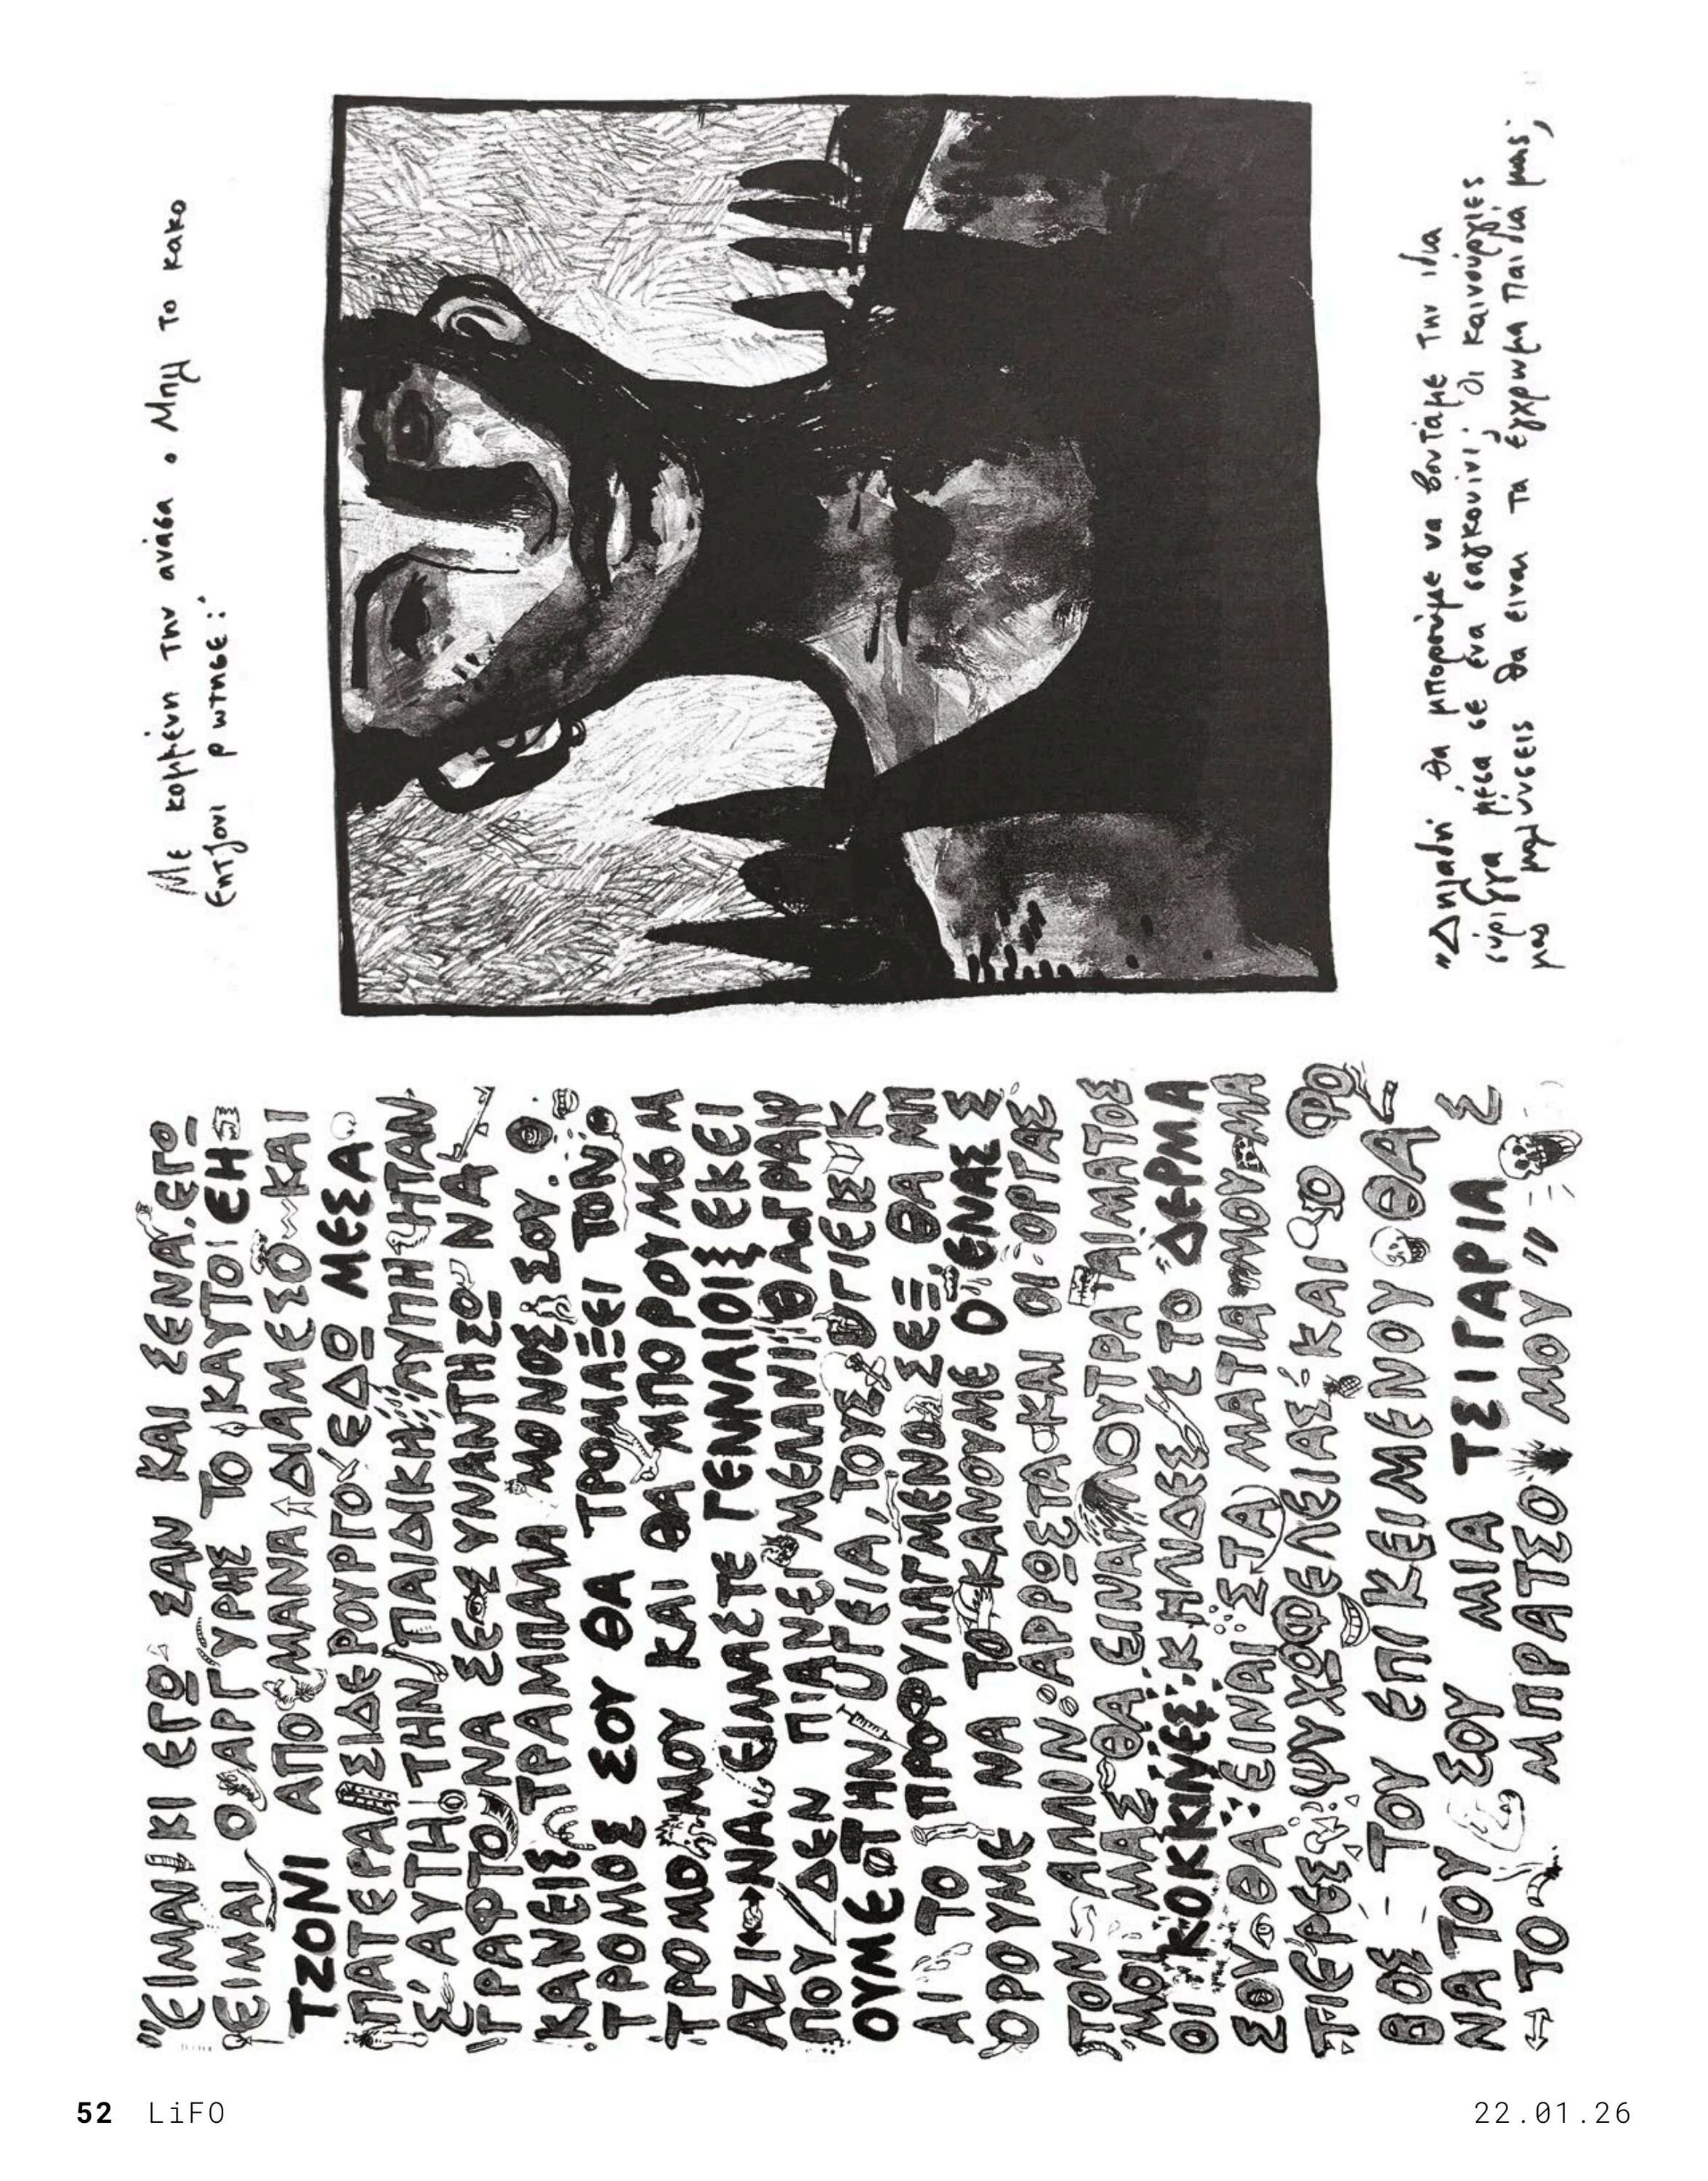 "ΕΙΜΑΙ ΚΙ ΕΓΩ ΣΑΝ ΚΑΙ ΣΕΝΑ. ΕΓΩ
ΕΙΜΑΙ Ο ΑΡΓΥΡΗΣ ΤΟ ΚΑΥΤΟ! ΕΗ
ΤΖΟΝΙ ΑΠΟ ΜΑΝΑ ΔΙΑΜΕΣΟ ΚΑΙ
ΠΑΤΕΡΑ ΣΙΔΕΡΟΥΡΓΟ. ΕΔΩ ΜΕΣΑ
Σ' ΑΥΤΗ ΤΗΝ ΠΑΙΔΙΚΗ ΛΥΠΗ ΗΤΑΝ
ΓΡΑΦΤΟ ΝΑ ΣΕ ΣΥΝΑΝΤΗΣΩ ΝΑ
ΚΑΝΕΙΣ ΤΡΑΜΠΑΛΑ ΜΟΝΟΣ ΣΟΥ. Ο
ΤΡΟΜΟΣ ΣΟΥ ΘΑ ΤΡΟΜΑΞΕΙ ΤΟΝ
ΤΡΟΜΟ ΜΟΥ ΚΑΙ ΘΑ ΜΠΟΡΟΥΜΕ Μ
ΑΖΙ ΝΑ ΕΙΜΑΣΤΕ ΓΕΝΝΑΙΟΙ ΕΚΕΙ
ΠΟΥ ΔΕΝ ΠΙΑΝΕΙ ΜΕΛΑΝΙ ΘΑ ΓΡΑΨ
ΟΥΜΕ ΣΤΗΝ ΥΓΕΙΑ, ΤΟΥΣ ΥΓΙΕΙΣ Κ
ΑΙ ΤΟ ΠΡΟΦΥΛΑΓΜΕΝΟ ΣΕΞ. ΘΑ ΜΠ
ΟΡΟΥΜΕ ΝΑ ΤΟ ΚΑΝΟΥΜΕ Ο ΕΝΑΣ Σ
ΤΟΝ ΑΛΛΟΝ ΑΡΡΩΣΤΑ ΚΑΙ ΟΙ ΟΡΓΑΣ
ΜΟΙ ΜΑΣ ΘΑ ΕΙΝΑΙ ΛΟΥΤΡΑ ΑΙΜΑΤΟΣ
ΟΙ ΚΟΚΚΙΝΕΣ ΚΗΛΙΔΕΣ ΣΤΟ ΔΕΡΜΑ
ΣΟΥ ΘΑ ΕΙΝΑΙ ΣΤΑ ΜΑΤΙΑ ΜΟΥ ΜΑ
ΤΙΕΡΕΣ ΨΥΧΩΦΕΛΕΙΑΣ ΚΑΙ Ο ΦΟ
ΒΟΣ ΤΟΥ ΕΠΙΚΕΙΜΕΝΟΥ ΘΑ
ΝΑΤΟΥ ΣΟΥ ΜΙΑ ΤΣΙΓΑΡΙΑ Σ
ΤΟ ΜΠΡΑΤΣΟ ΜΟΥ"
Με κομμένη την ανάσα ο Μπιλ το κακό
Εητζονι ρωτησε:
"Δηλαδή θα μπορούμε να βουτάμε την ιδια
σύριγγα μέσα σε ένα σαγκουίνι; Οι καινούργιες
μας μολύνσεις θα ειναι τα έγχρωμα παιδιά μας;
52 LiFO
22.01.26